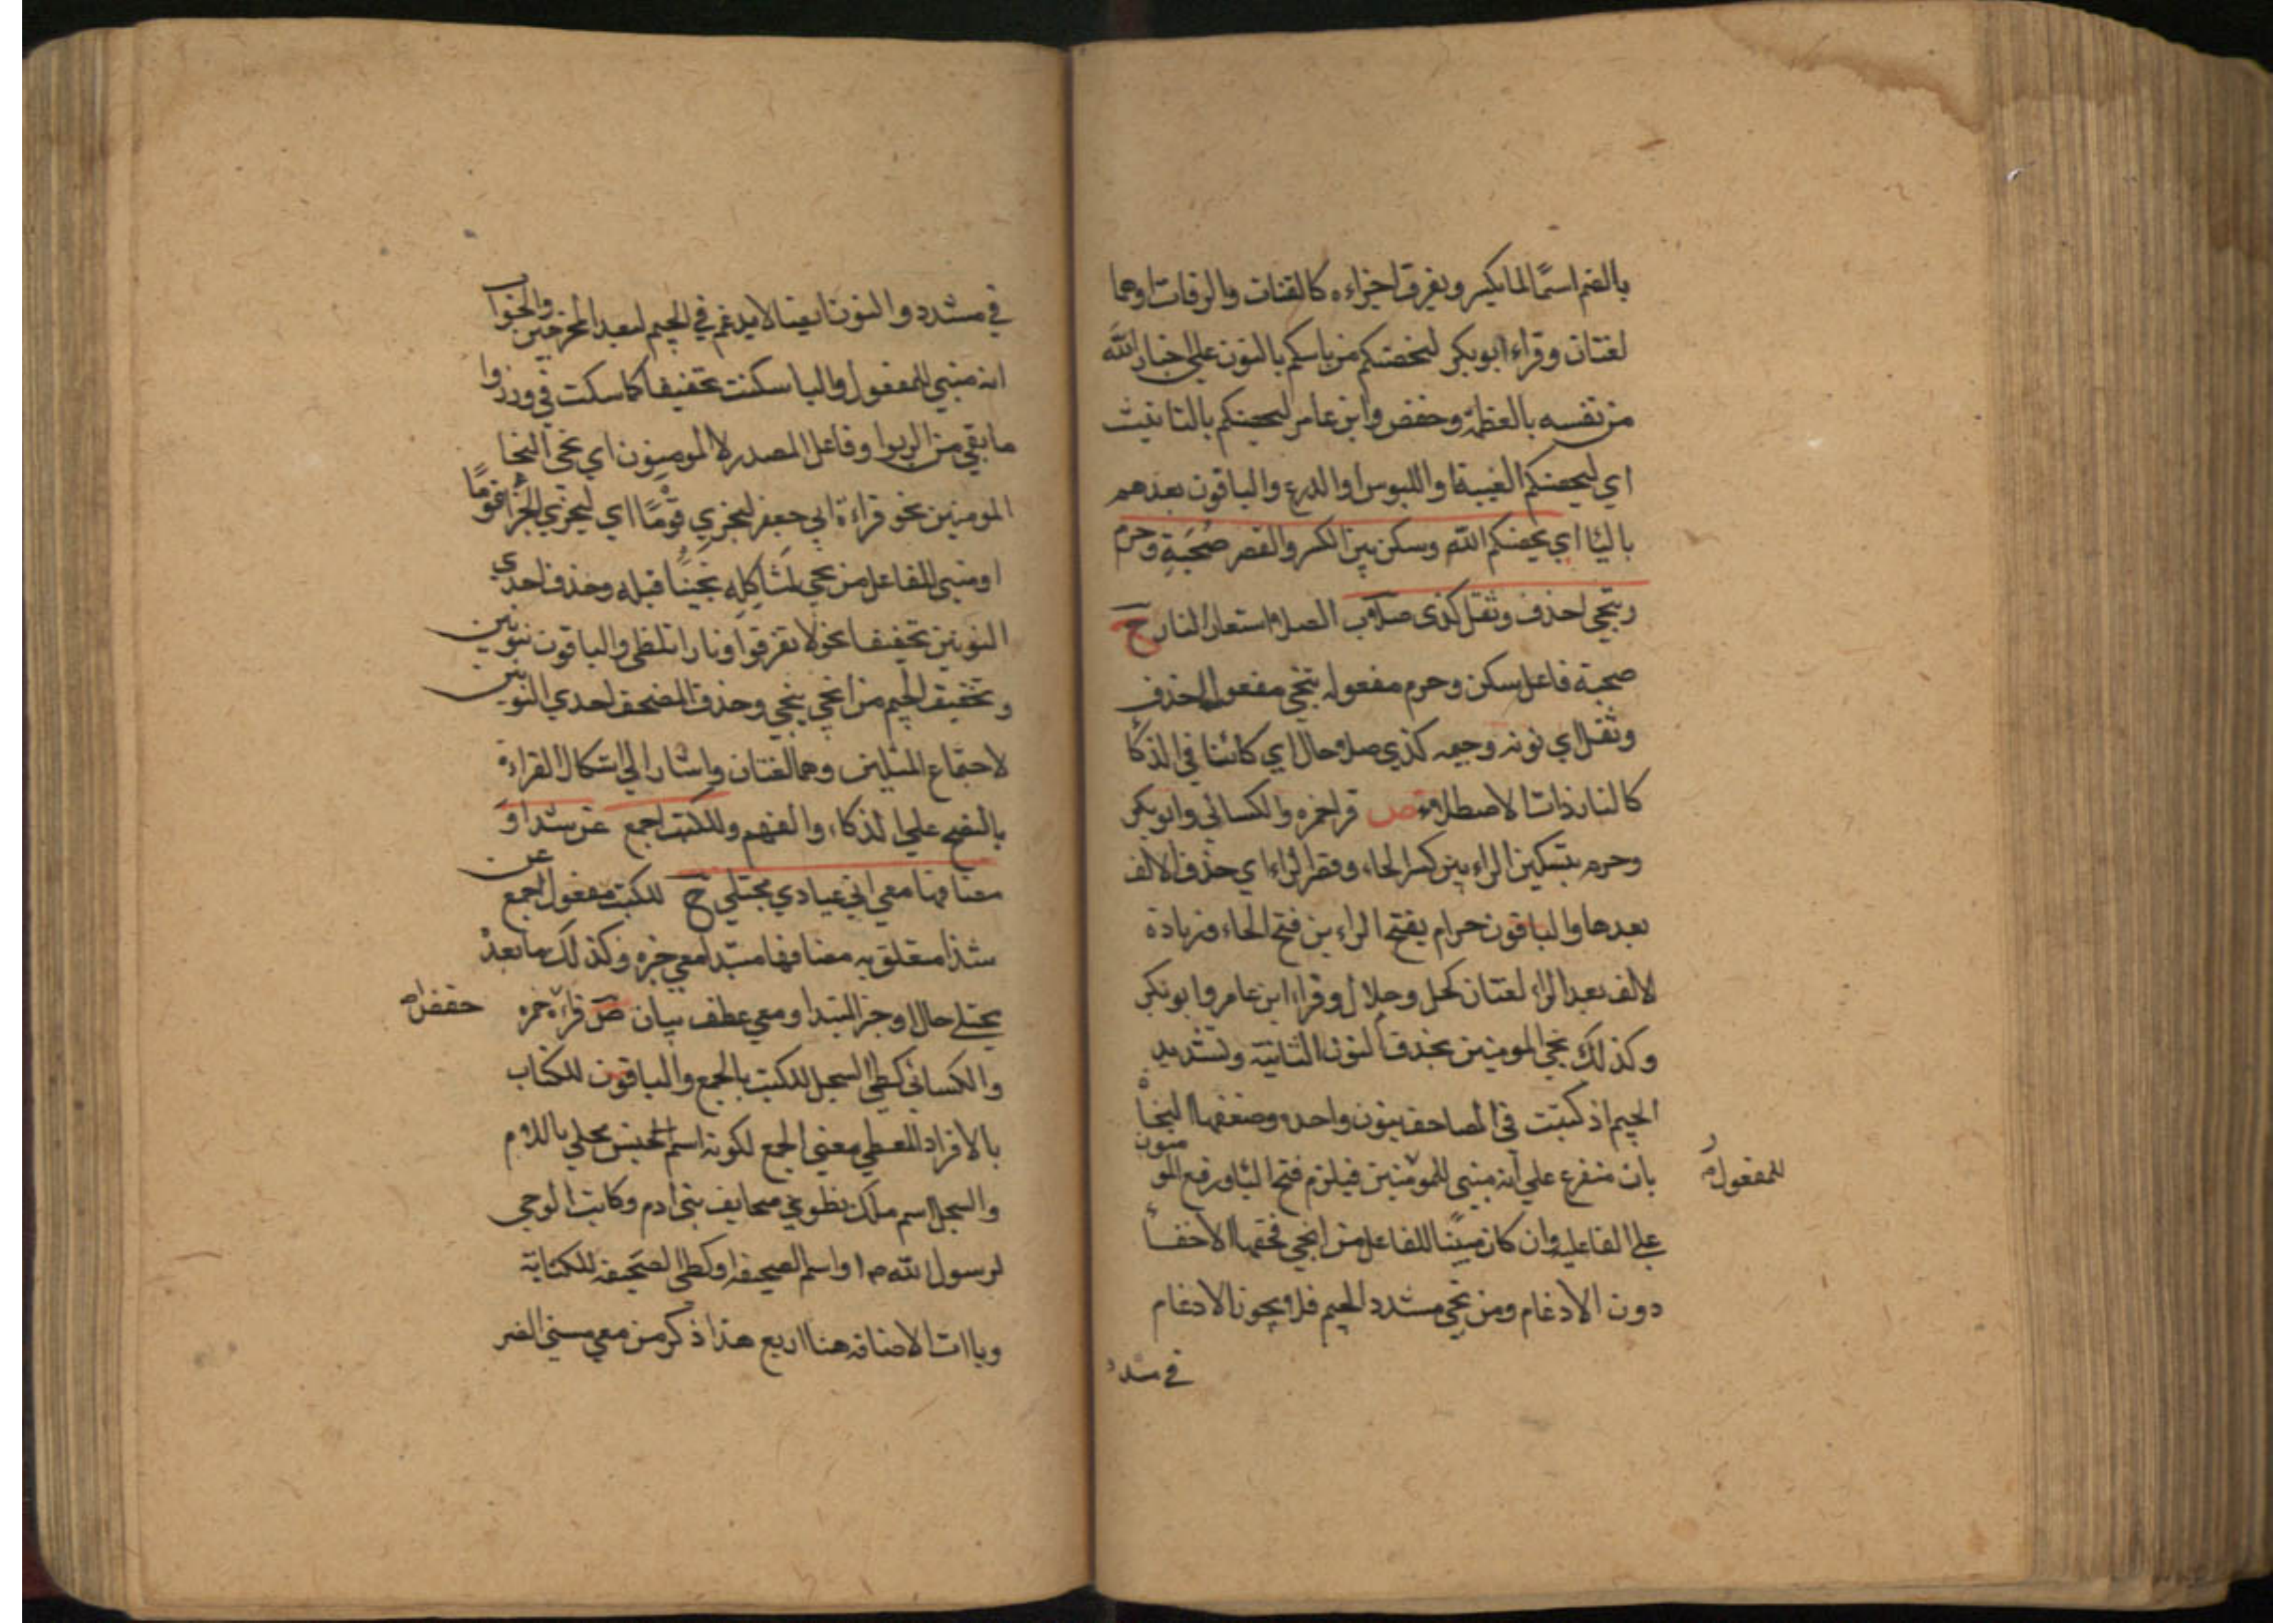 بالضم اسمًا لما يكسر ويفرق اجزاءه كالفتات والرفات اوهما
لغتان وقراء ابوبكر لنحصنكم من باسكم بالنون علي اخبار الله
من نفسه بالعظمة وحفص وابن عامر لتحصنكم بالتانيث
اي لتحصنكم الغيبة او اللبوس او الدرع والباقون بعدهم
باليا اي يحصنكم الله وسكن بين الكسر والقصر صُحَبةٍ وحرم
وننجي احذف وثقل كذى صلا ب الصلا استعار النار ح
صحبة فاعل سكن وحرم مفعوله ننجي مفعول احذف
وثقل اي نونه وجيمه كذي صلا حال اي كائنا في الذكا
كالنار ذات الاصطلاء ص قرا حمزه والكسائي وابوبكر
وحرم بتسكين الراء بين كسر الحاء وقصر الراء اي حذف الالف
بعدها والباقون حرام بفتح الراء بين فتح الحاء وزيادة
لالف بعد الراء لغتان كحل وحلال وقراء ابن عامر وابوبكر
وكذلك نجي المومنين بحذف النون الثانية وتشديد
الجيم اذ كتبت في المصاحف بنون واحده وضعفها النحاة
بان متفرع علي انه مبني للمومنين فيلزم فتح اليا ورفع المو منون
للمفعول
علي الفاعليه وان كان مبينًا للفاعل من انجي فحقها الاخفا
دون الادغام ومن نجي مشدد الجيم فلا يجوز الادغام
في مشدد
في مشدد والنون ايضا لا يدغم في الجيم لبعد المخرجين والجواب
انه مبني للمفعول واليا سكنت تخفيفا كما سكنت في وذروا
ما بقي من الربوا وفاعل المصدر لا المومنون اي نجي النجا
المومنين نحو قراءة ابي جعفر ليجزي قومًا اي ليجزي الجزا قومًا
او مبني للفاعل من نجي لمشاكله نجينا قبله وحذف احدي
النونين تخفيفا نحو لا تفرقوا ونارا تلظى والباقون بنونين
وتخفيف الجيم من انجي ينجي وحذف المصحف احدي النونين
لاجتماع المثلين وهما لغتان واشار الي اشكال القراءة
بالنصح علي الذكاء والفهم وللكتب اجمع عن شذا و
مضافها معي اني عبادي مجتلي ح للكتب مفعول اجمع عن
شذا متعلق به مضافها مبتدا معي خبره وكذلك ما بعد
يجتلي حال او خبر المبتدا ومعي عطف بيان ص قراء حمزه حفص
والكسائي كطي السجل للكتب بالجمع والباقون للكتاب
بالافراد المعطي معني الجمع لكونه اسم الجنس محلي باللام
والسجل اسم ملك يطوي صحايف بني ادم وكاتب الوحي
لرسول الله ص او اسم الصحيفه او كطي الصحيفه للكتابة
وياات الاضافه هنا اربع هذا ذكر من معي مسني الضر